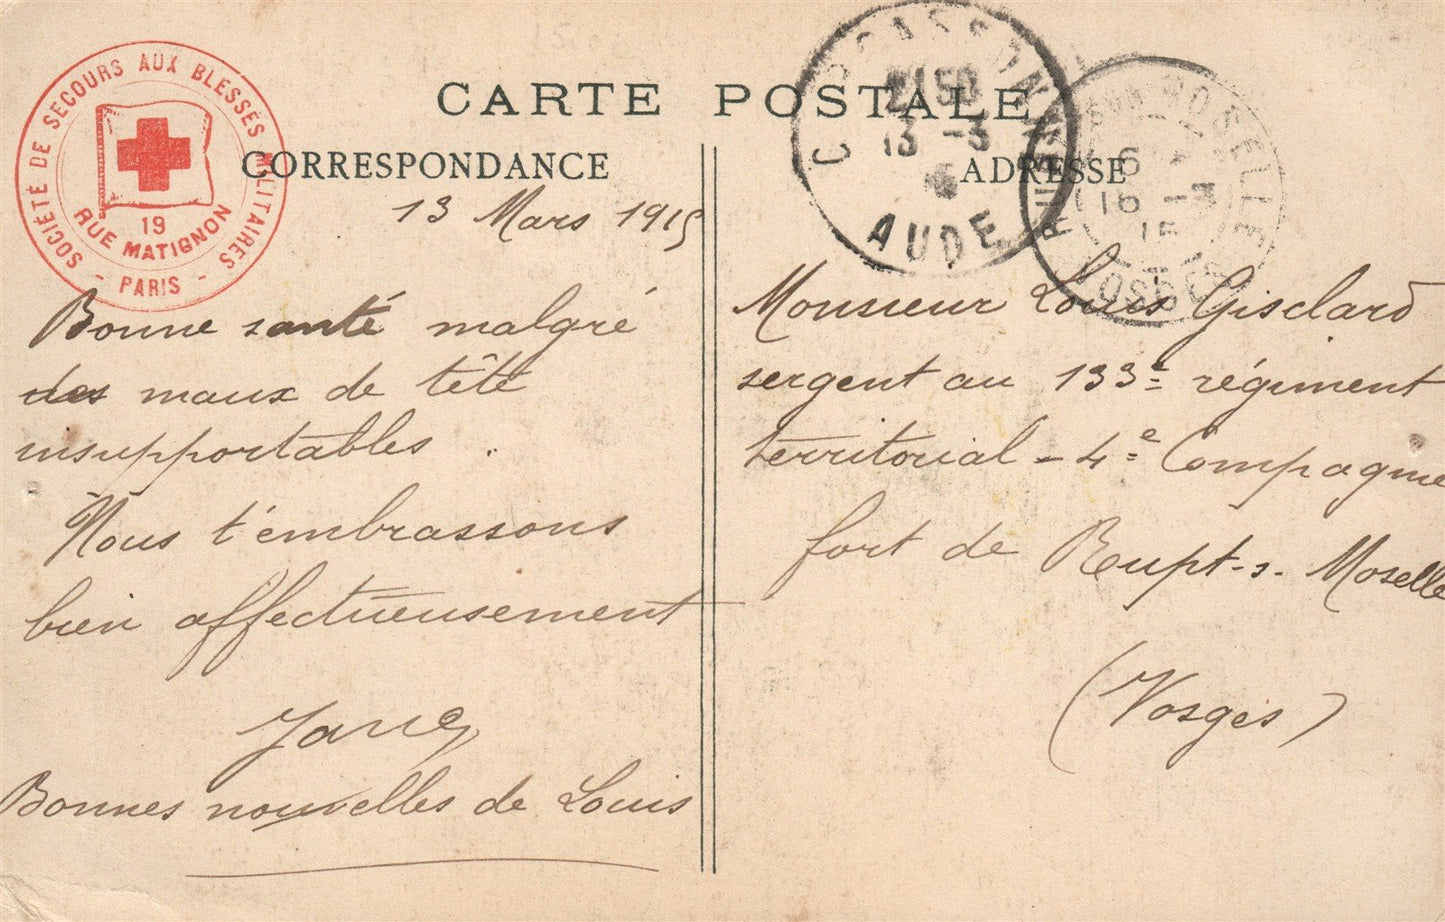 SOCIÉTÉ DE SECOURS AUX BLESSES MILITAIRES
19
RUE MATIGNON
- PARIS -
CARTE POSTALE
CORRESPONDANCE
13 Mars 1915
Bonne santé malgré
des maux de tête
insupportables.
Nous t'embrassons
bien affectueusement
Bonnes nouvelles de Louis
CARCASSONNE
13 -3
AUDE
ADRESSE
MOSELLE
16
VOSGES
Monsieur Louis Gisclard
sergent au 133e régiment
territorial - 4e Compagnie
fort de Rupt-s-Moselle
(Vosges)